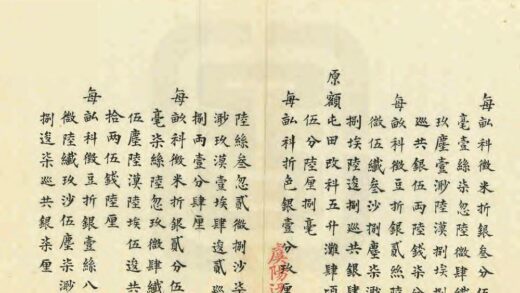 每畝科徵米折銀叁分伍
毫壹絲柒忽捌微肆纖
玖塵壹渺陸漠陸埃
巡共銀伍兩陸錢柒分
每畝科徵豆折銀貳絲陸
微伍纖叁沙捌塵柒渺
捌埃陸逡捌巡共銀肆
原額屯田改科五升灘肆頃
伍分陸厘捌毫
每畝科折色銀壹分玖厘
虞陽
陸絲叁忽貳微捌沙柒
渺玖漠壹埃肆逡貳
捌兩壹分肆厘
每畝科徵米折銀貳分伍
毫柒絲陸忽玖微肆纖
伍塵陸漠陸埃伍逡共
拾兩伍錢陸厘
每畝科徵豆折銀壹絲八
微陸纖玖沙伍塵柒渺
捌逡柒巡共銀柒厘